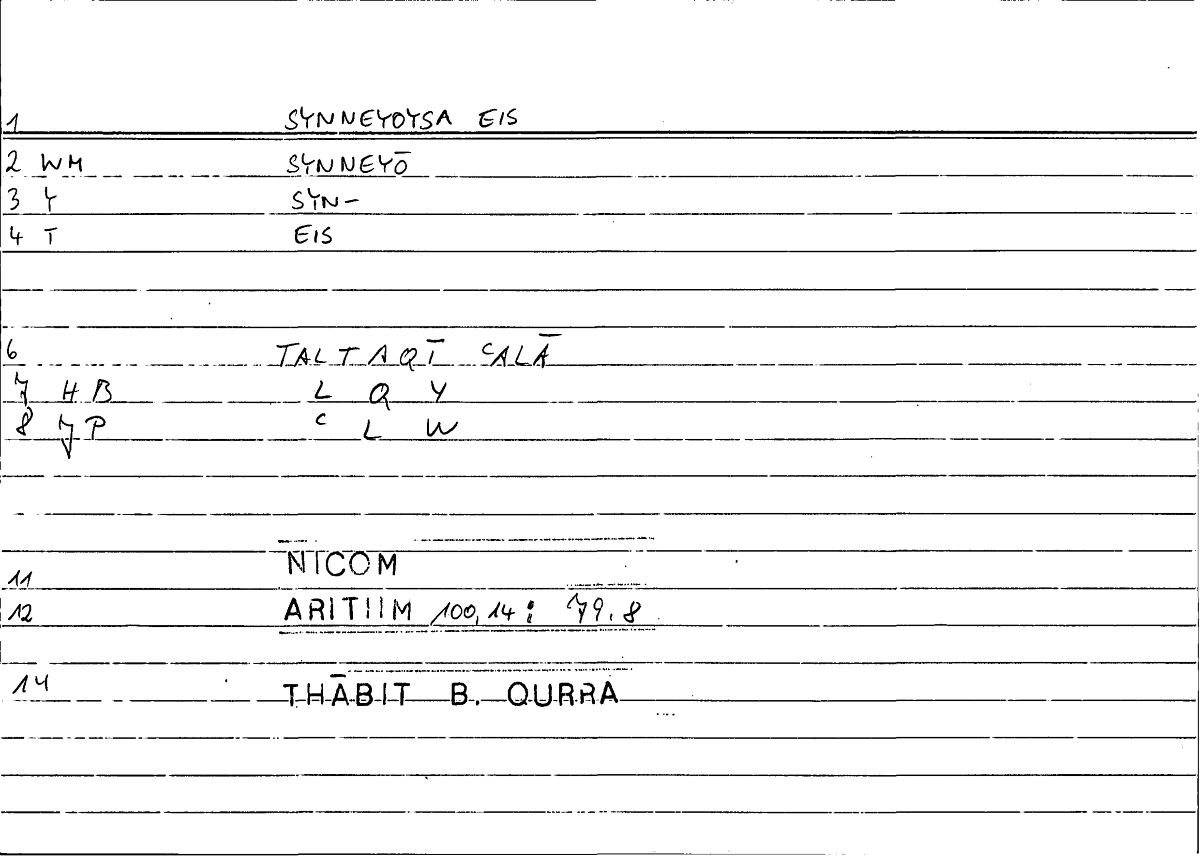 1 SYNNEYOYSA EIS
2 WM SYNNEYŌ
3 Y SYN-
4 T EIS
6 TALTAQĪ ʿALĀ
7 HB L Q Y
8 7P ʿ L W
NICOM
11
12 ARITIIM 100,14 : 79.8
14 THĀBIT B. QURRA